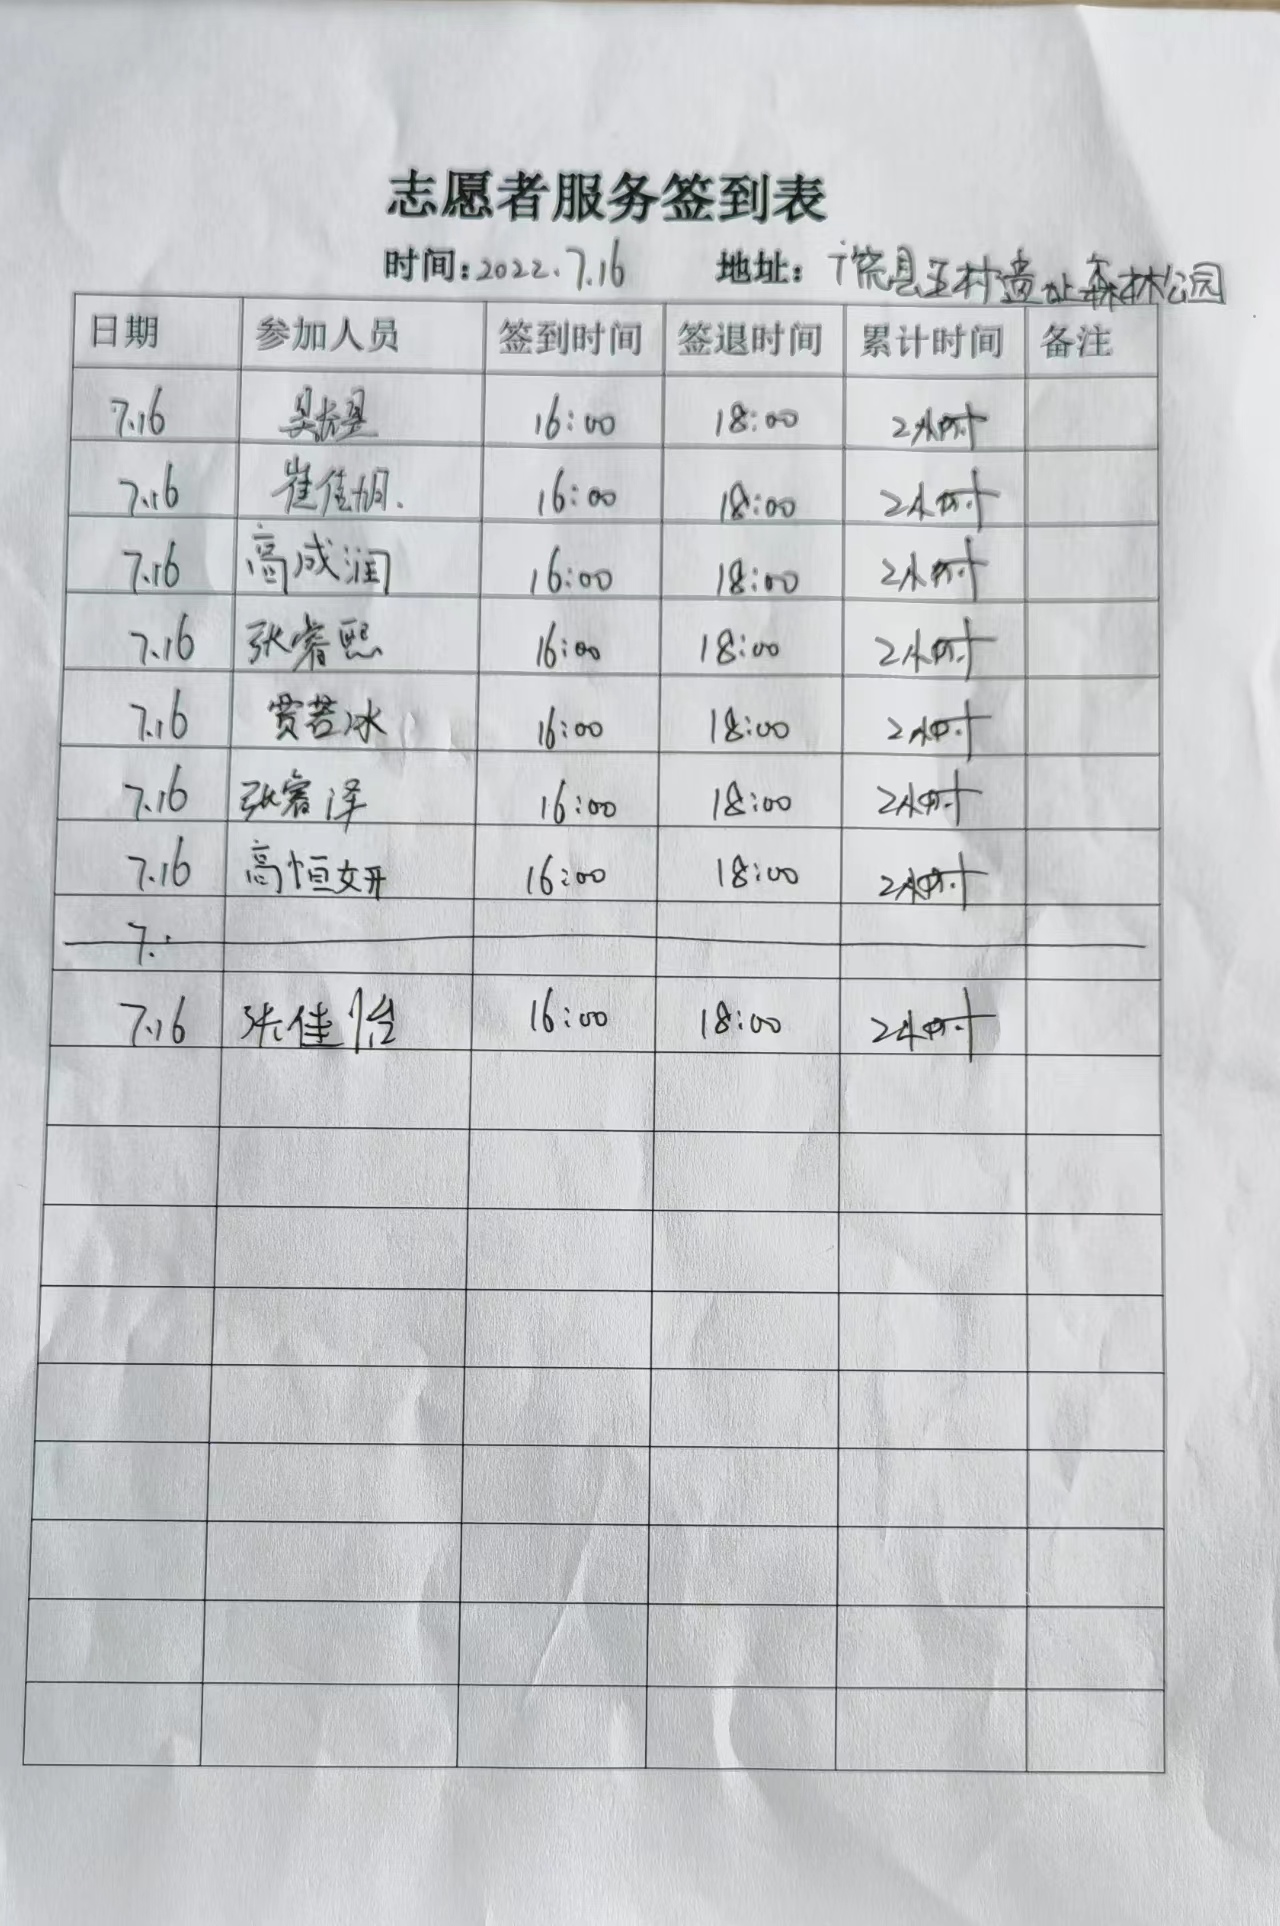 志愿者服务签到表
时间:2022.7.16 地址:饶县王村遗址森林公园
日期 参加人员 签到时间 签退时间 累计时间 备注
7.16 16:00 18:00 2小时
7.16 崔佳旭. 16:00 18:00 2小时
7.16 高成润 16:00 18:00 2小时
7.16 张睿熙 16:00 18:00 2小时
7.16 贾若冰 16:00 18:00 2小时
7.16 张睿泽 16:00 18:00 2小时
7.16 高恒妍 16:00 18:00 2小时
7.
7.16 张佳怡 16:00 18:00 2小时